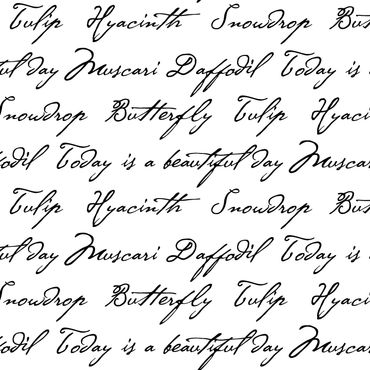 Tulip Hyacinth Snowdrop But
ul day Muscari Daffodil Today is a
Snowdrop Butterfly Tulip Hyaci
odil Today is a beautiful day Muscar
Tulip Hyacinth Snowdrop But
ul day Muscari Daffodil Today is a
Snowdrop Butterfly Tulip Hyaci
odil Today is a beautiful day Muscar